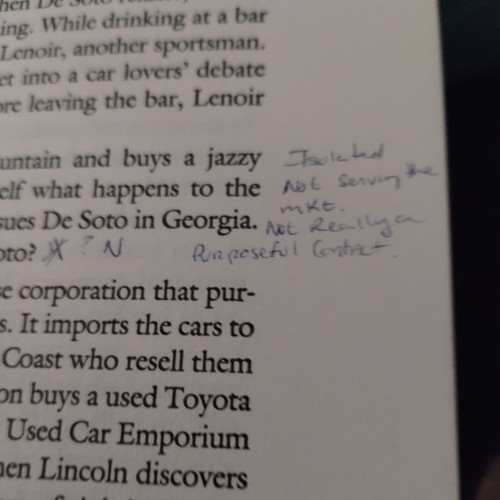 ing. While drinking at a bar
Lenoir, another sportsman.
et into a car lovers' debate
ore leaving the bar, Lenoir
untain and buys a jazzy
Isolated
elf what happens to the
Not Serving the
mkt.
sues De Soto in Georgia.
Not Really a
oto? ? N
Purposeful Contact.
se corporation that pur-
s. It imports the cars to
Coast who resell them
on buys a used Toyota
Used Car Emporium
hen Lincoln discovers